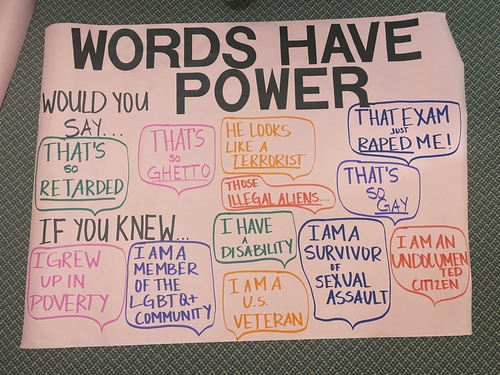 WORDS HAVE
POWER
WOULD YOU
SAY...
THAT'S
SO
RETARDED
THAT'S
SO
GHETTO
HE LOOKS
LIKE A
TERRORIST
THOSE
ILLEGAL ALIENS...
THAT'S
SO
GAY
THAT EXAM
JUST
RAPED ME!
IF YOU KNEW...
I GREW
UP IN
POVERTY
I AM A
MEMBER
OF THE
LGBTQ+
COMMUNITY
I HAVE
A
DISABILITY
I AM A
U.S.
VETERAN
I AM A
SURVIVOR
OF
SEXUAL
ASSAULT
I AM AN
UNDOCUMEN
TED
CITIZEN